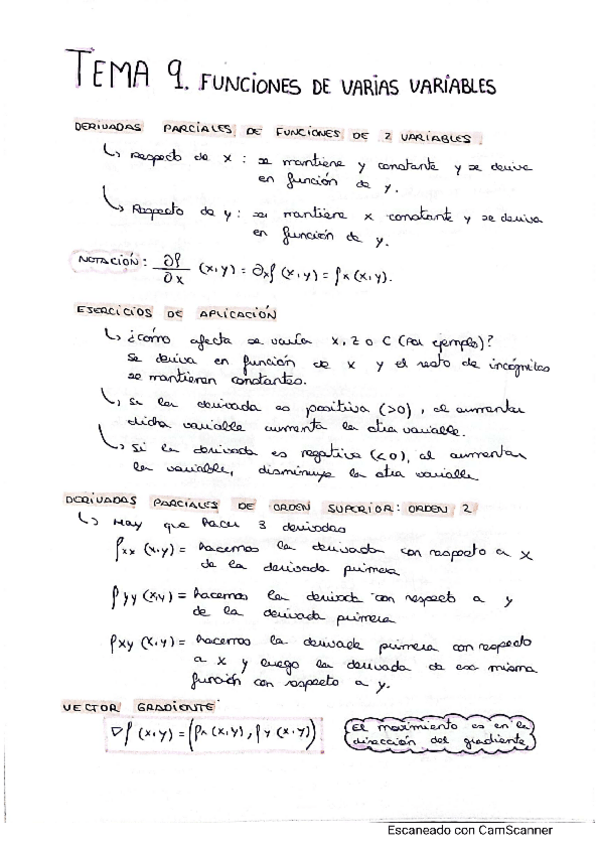 TEMA 9. FUNCIONES DE VARIAS VARIABLES
DERIVADAS PARCIALES DE FUNCIONES DE 2 VARIABLES.
↳ respecto de x : se mantiene y constante y se deriva
en función de y.
↳ Respecto de y : se mantiene x constante y se deriva
en función de y.
NOTACIÓN: ∂f/∂x (x,y) = ∂xf (x,y) = fx(x,y).
EJERCICIOS DE APLICACIÓN
↳ ¿cómo afecta se varía x, z o c (por ejemplo)?
Se deriva en función de x y el resto de incógnitas
se mantienen constantes.
↳ Si la derivada es positiva (>0), al aumentar
dicha variable aumenta la otra variable.
↳ Si la derivada es negativa (<0), al aumentar
la variable, disminuye la otra variable
DERIVADAS PARCIALES DE ORDEN SUPERIOR: ORDEN 2
↳ Hay que hacer 3 derivadas
fxx (x,y) = hacemos la derivada con respecto a x
de la derivada primera
fyy (x,y) = hacemos la derivada con respecto a y
de la derivada primera
fxy (x,y) = hacemos la derivada primera con respecto
a x y luego la derivada de esa misma
función con respecto a y.
VECTOR GRADIENTE
∇f (x,y) = (fx (x,y), fy (x,y))
El movimiento es en la
dirección del gradiente
Escaneado con CamScanner